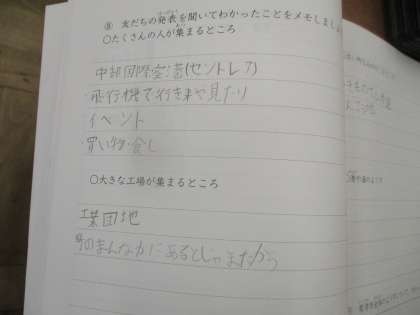 ⑧ 友だちの発表を聞いてわかったことをメモしましょ
○たくさんの人が集まるところ
中部国際空港(セントレア)
・飛行機で行き来や見たり
・イベント
・買い物・食し
○大きな工場が集まるところ
工業団地
町のまんなかにあるとじゃまだから